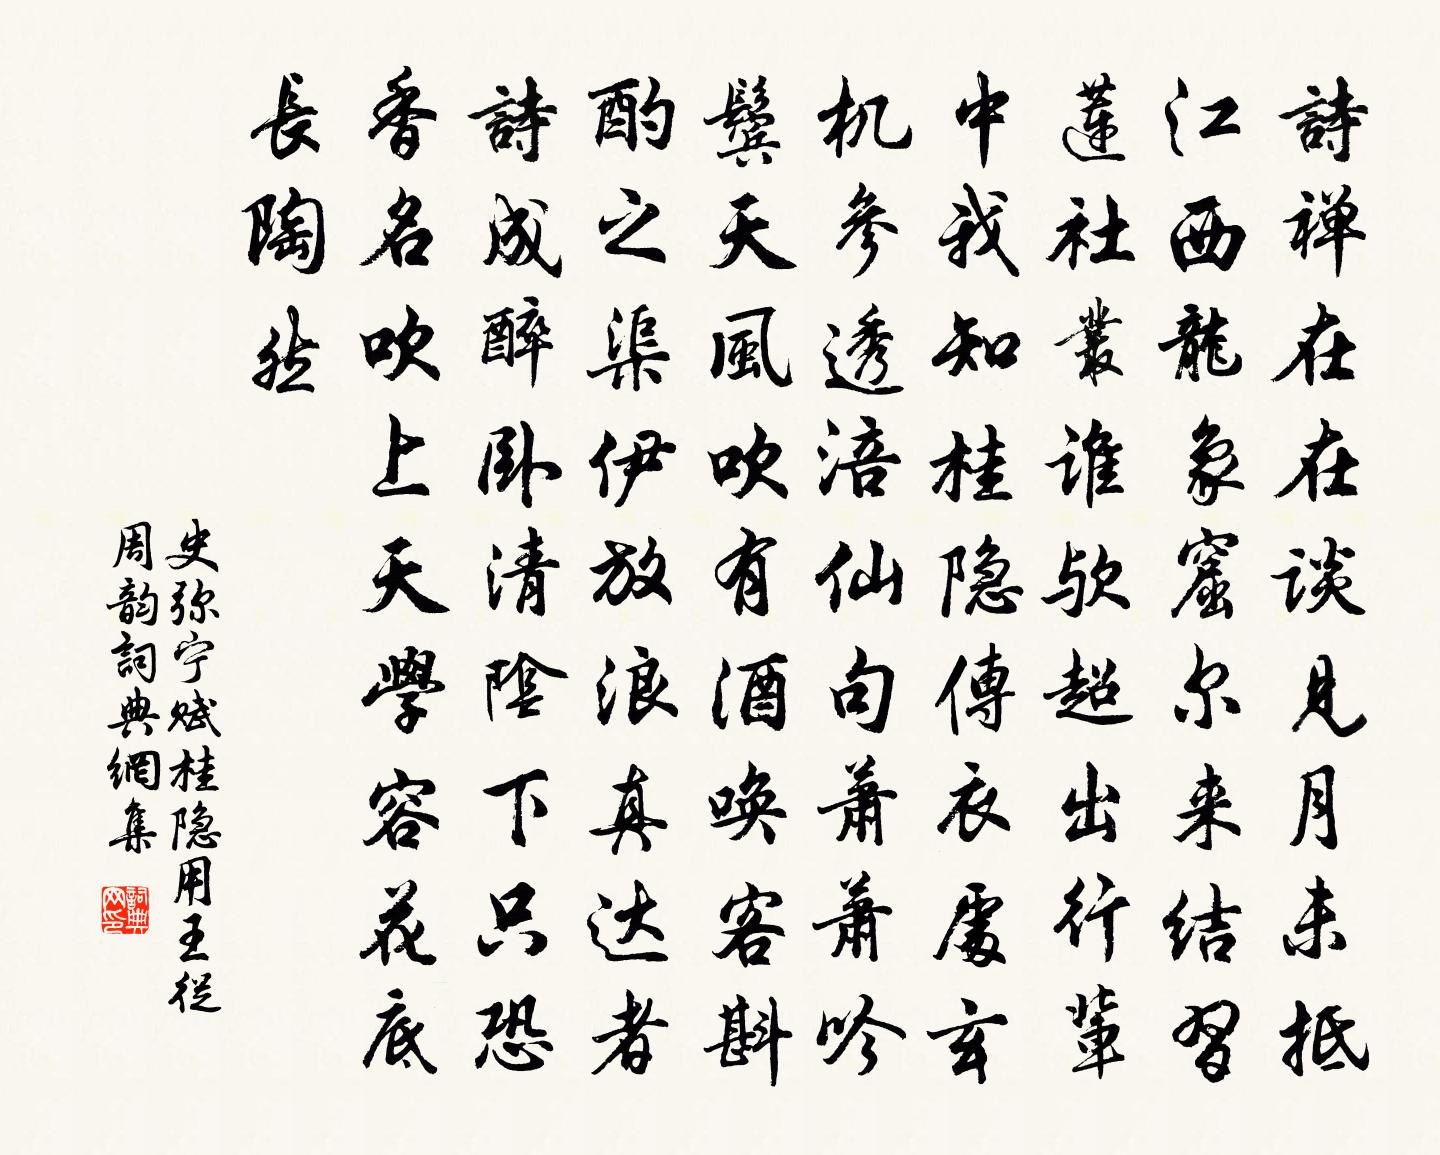 詩禅在在谈見月未抵
江西龍象窟尔来结習
蓮社叢谁欤超出行輩
中我知桂隐傳衣處玄
机參透涪仙句萧萧吟
鬓天風吹有酒唤客斟
酌之渠伊放浪真达者
詩成醉卧清陰下只恐
香名吹上天學容花底
長陶然
史弥宁赋桂隐用王從
周韵詞典網集
詞典网印